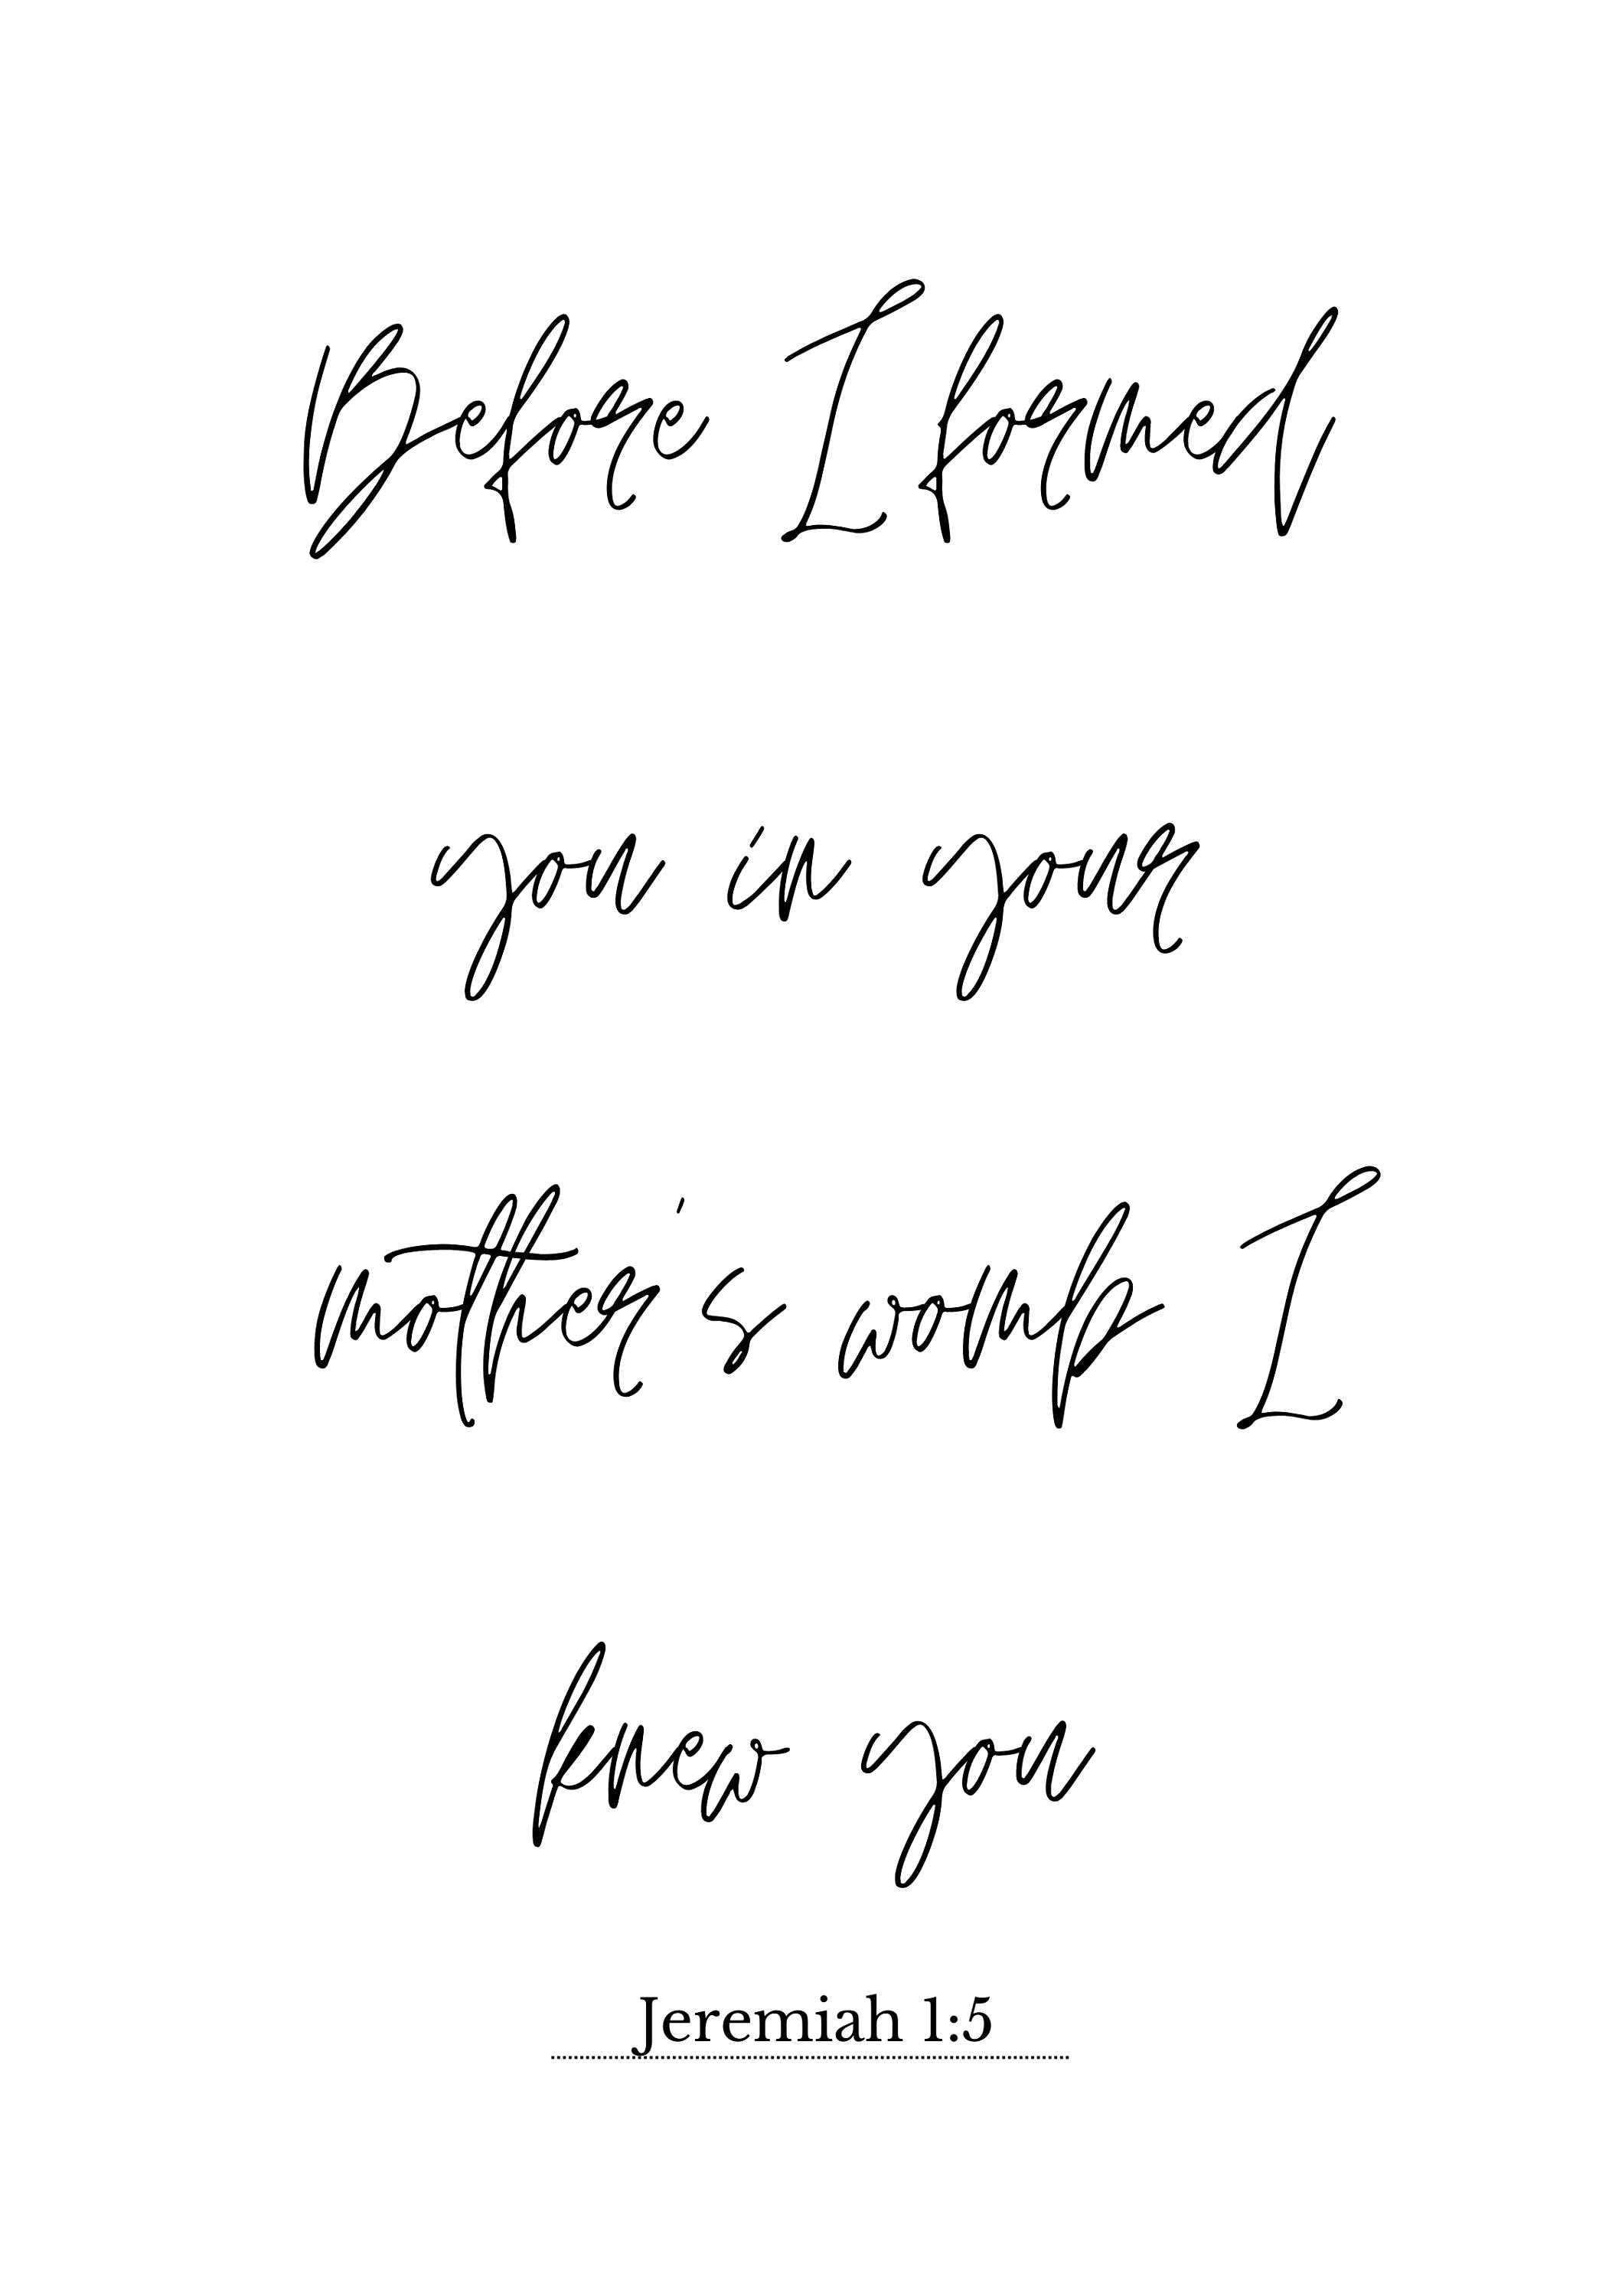 Before I formed
you in your
mother's womb I
knew you
Jeremiah 1:5